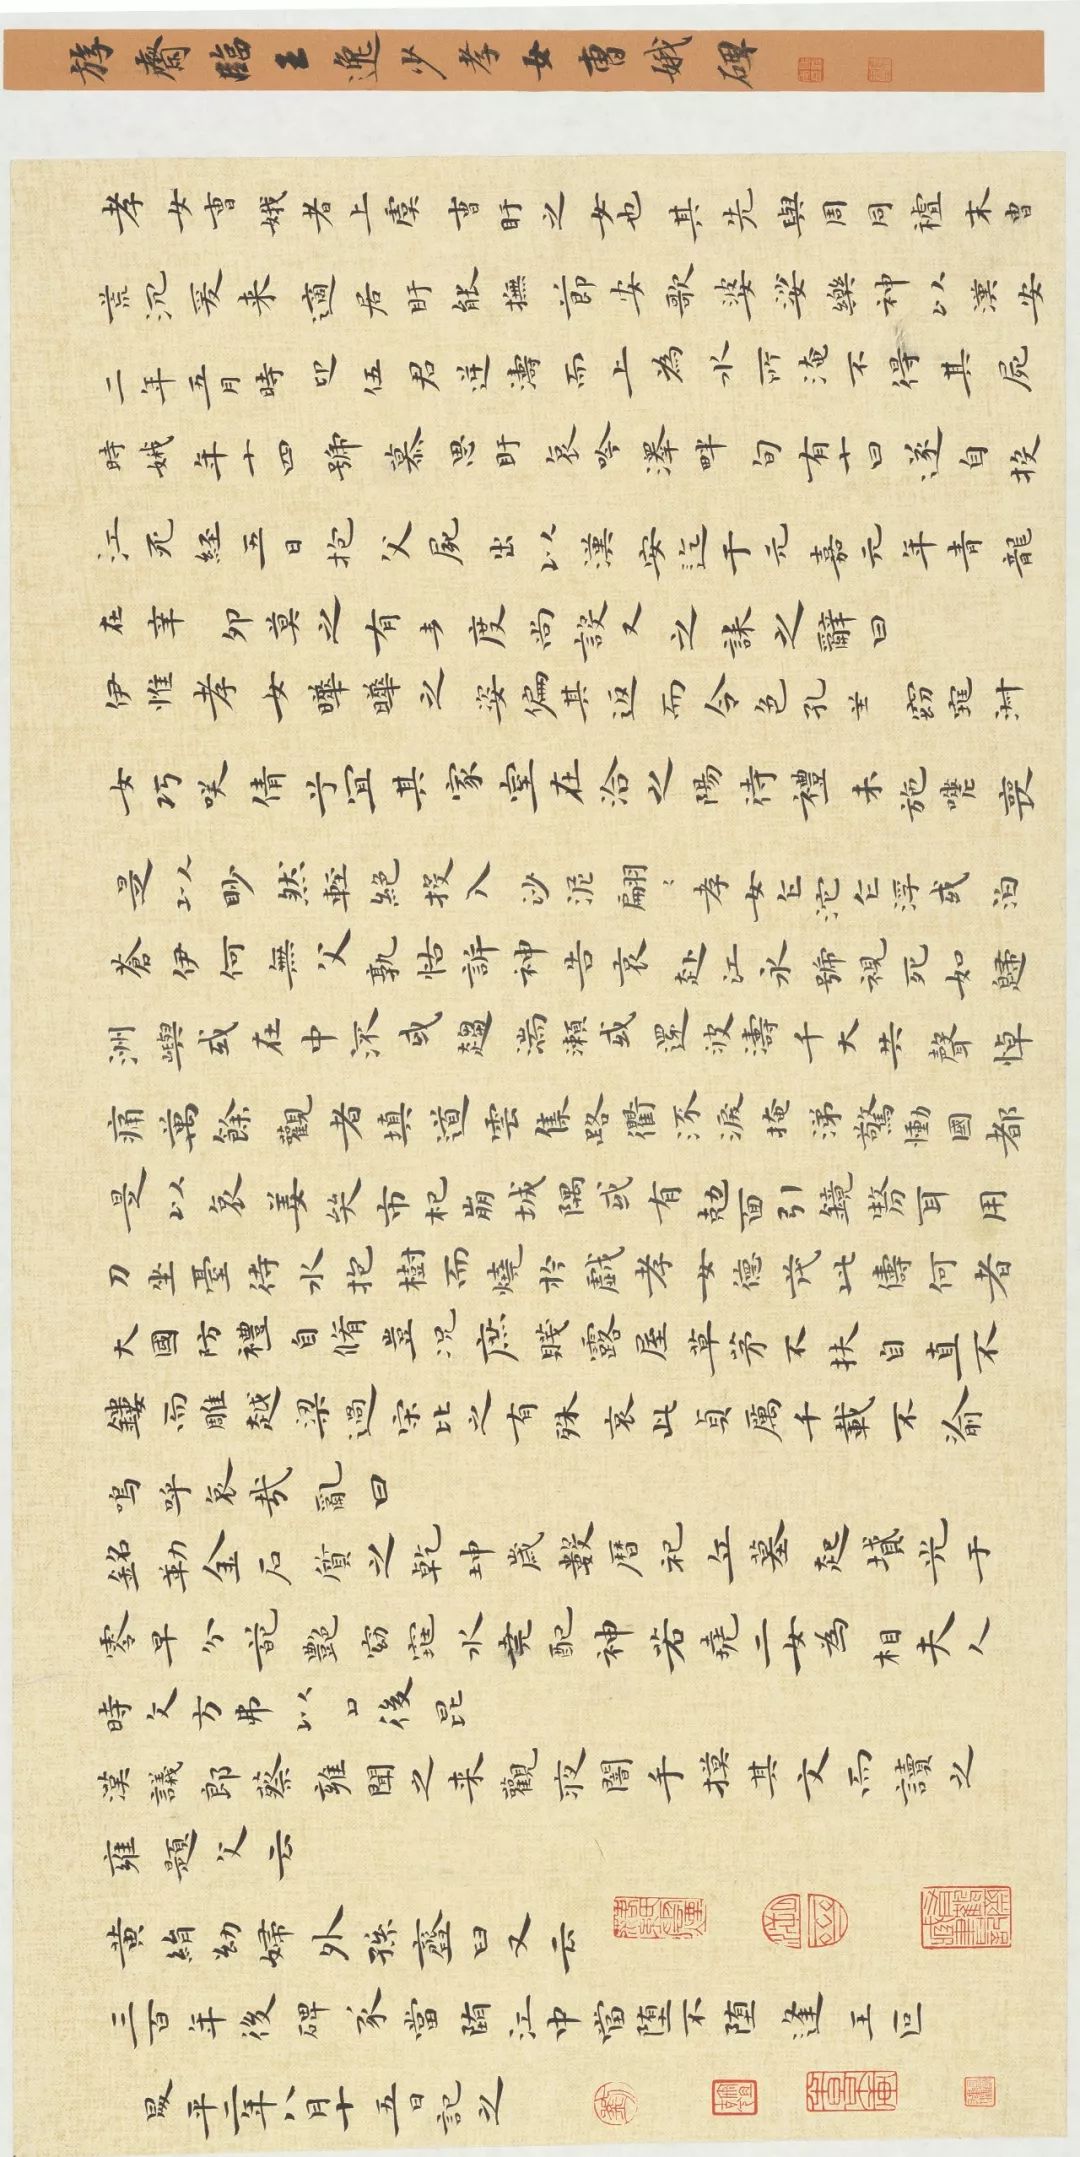 游齋臨王逸少孝女曹娥碑
孝女曹娥者上虞曹盱之女也其先與周同祖末曹
荒沉爰来適居盱能撫節安歌婆娑樂神以漢安
二年五月時迎伍君逆濤而上為水所淹不得其屍
時娥年十四號慕思盱哀吟澤畔旬有七日遂自投
江死経五日抱父屍出以漢安迄于元嘉元年青龍
在辛卯莫之有表度尚設又之誄之辭曰
伊惟孝女曄曄之姿偏其返而令色孔芊窈窕淑
女巧咲倩兮宜其家室在洽之陽待禮未施嗟喪
是以眇然輕絶投入沙泥翩〻孝女乍沱乍浮或泊
蒼伊何無父孰怙訴神告哀赴江永號視死如歸
洲嶼或在中流或趨湍瀬或還波濤千夫共聲悼
痛萬餘觀者填道雲集路衢流淚掩涕驚慟國都
是以哀姜哭市杞崩城隅或有剋面引鏡剺耳用
刀坐臺待水抱樹而燒於戲孝女德茂此儔何者
大國防禮自脩豈况庶賤露屋草茅不扶自直不
鏤而雕越梁過宋比之有殊哀此貞厲千載不渝
嗚呼哀哉亂曰
銘勒金石質之乾坤歲數曆祀立墓起墳光于
零早分葩艷窈窕永丗配神若堯二女為相夫人
時文方弗以後昆
漢議郎蔡雍聞之来觀夜闇手摸其文而讀之
雍題父云
黃絹幼婦外孫齏臼又云
三百年後碑冢當墮江中當堕不堕逢王叵
昇平二年八月十五日記之